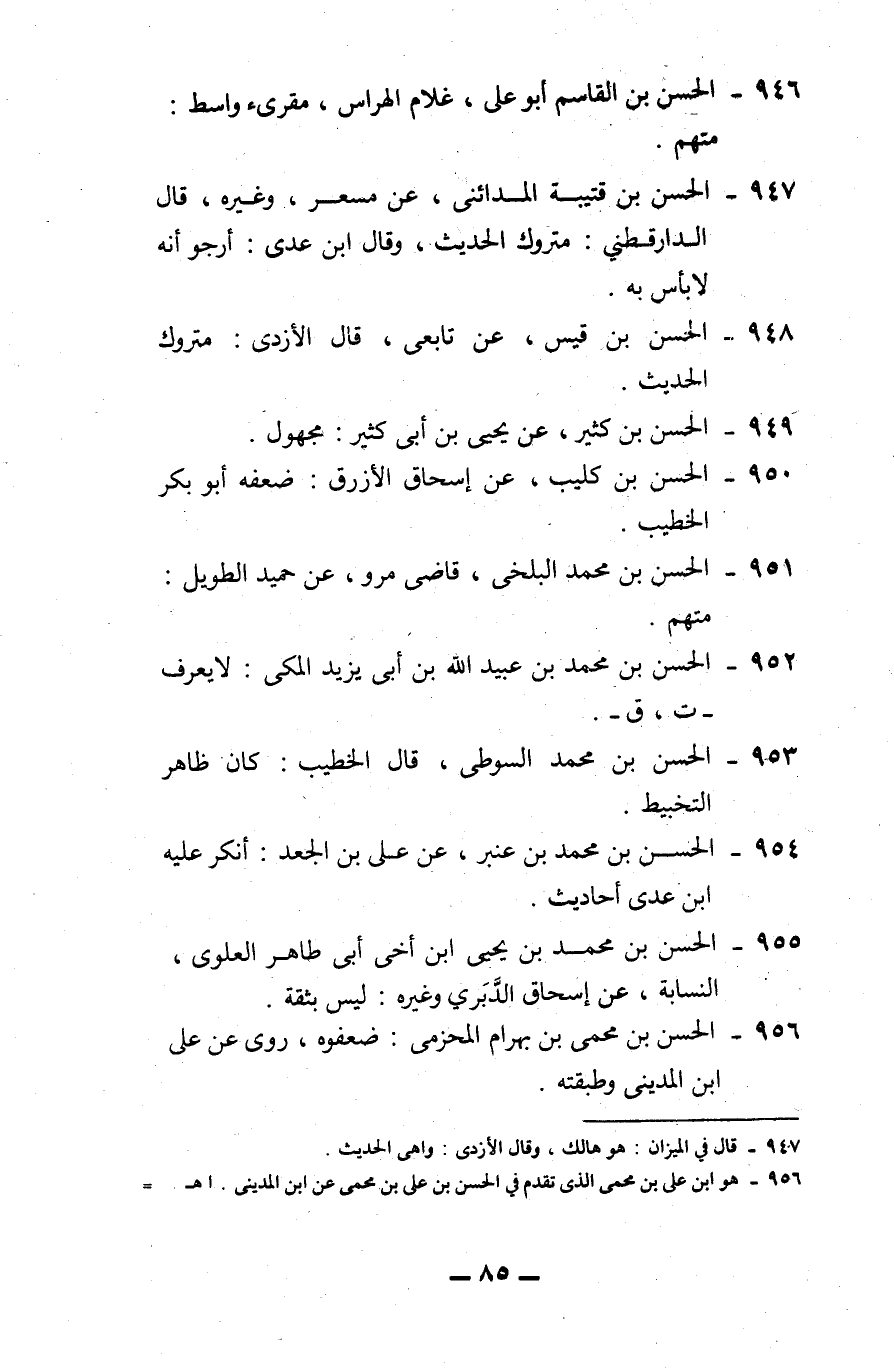 ٩٤٦ ـ الحسن بن القاسم أبو على ، غلام الهراس ، مقرىء واسط :
متهم .
٩٤٧ ـ الحسن بن قتيبة المدائنى ، عن مسعر ، وغيره ، قال
الدارقطني : متروك الحديث ، وقال ابن عدى : أرجو أنه
لابأس به .
٩٤٨ ـ الحسن بن قيس ، عن تابعى ، قال الأزدى : متروك
الحديث .
٩٤٩ ـ الحسن بن كثير ، عن يحيى بن أبى كثير : مجهول .
٩٥٠ ـ الحسن بن كليب ، عن إسحاق الأزرق : ضعفه أبو بكر
الخطيب .
٩٥١ ـ الحسن بن محمد البلخى ، قاضى مرو ، عن حميد الطويل :
متهم .
٩٥٢ ـ الحسن بن محمد بن عبيد الله بن أبى يزيد المكى : لايعرف
ـ ت ، ق ـ .
٩٥٣ ـ الحسن بن محمد السوطى ، قال الخطيب : كان ظاهر
التخبيط .
٩٥٤ ـ الحسن بن محمد بن عنبر ، عن على بن الجعد : أنكر عليه
ابن عدى أحاديث .
٩٥٥ ـ الحسن بن محمد بن يحيى ابن أخى أبى طاهر العلوى ،
النسابة ، عن إسحاق الدَّبَري وغيره : ليس بثقة .
٩٥٦ ـ الحسن بن محمى بن بهرام المحزمى : ضعفوه ، روى عن على
ابن المدينى وطبقته .
٩٤٧ ـ قال في الميزان : هو هالك ، وقال الأزدى : واهى الحديث .
٩٥٦ ـ هو ابن على بن محمى الذى تقدم في الحسن بن على بن محمى عن ابن المدينى . ا هـ =
ـ ٨٥ ـ